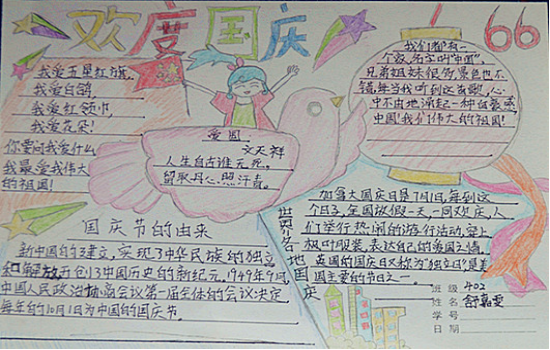 欢度国庆
66
我爱五星红旗,
我爱白鸽,
我爱红领巾,
我爱花朵!
你要问我爱什么,
我最爱我伟大
的祖国!
爱国
文天祥
人生自古谁无死。
留取丹心照汗青。
我们都有一
个家,名字叫"中国",
兄弟姐妹很多,景色也不
错,每当我听到这首歌,心
中不由地涌起一种自豪感,
中国!我们伟大的祖国!
国庆节的由来
新中国的建立,实现了中华民族的独立
和解放,开创了中国历史的新纪元,1949年9月,
中国人民政治协商会议第一届全体的会议决定
每年的10月1日为中国的国庆节。
世界各地国庆
加拿大国庆日是7月1日,每到这
个日子,全国放假一天,一同欢庆,人
们举行热闹的游行活动,穿上
极日的服装,表达自己的爱国之情。
英国的国庆日又称为"独立日"是美
国主要的节日之一。
班级 402
姓名 舒嘉雯
学号
日期